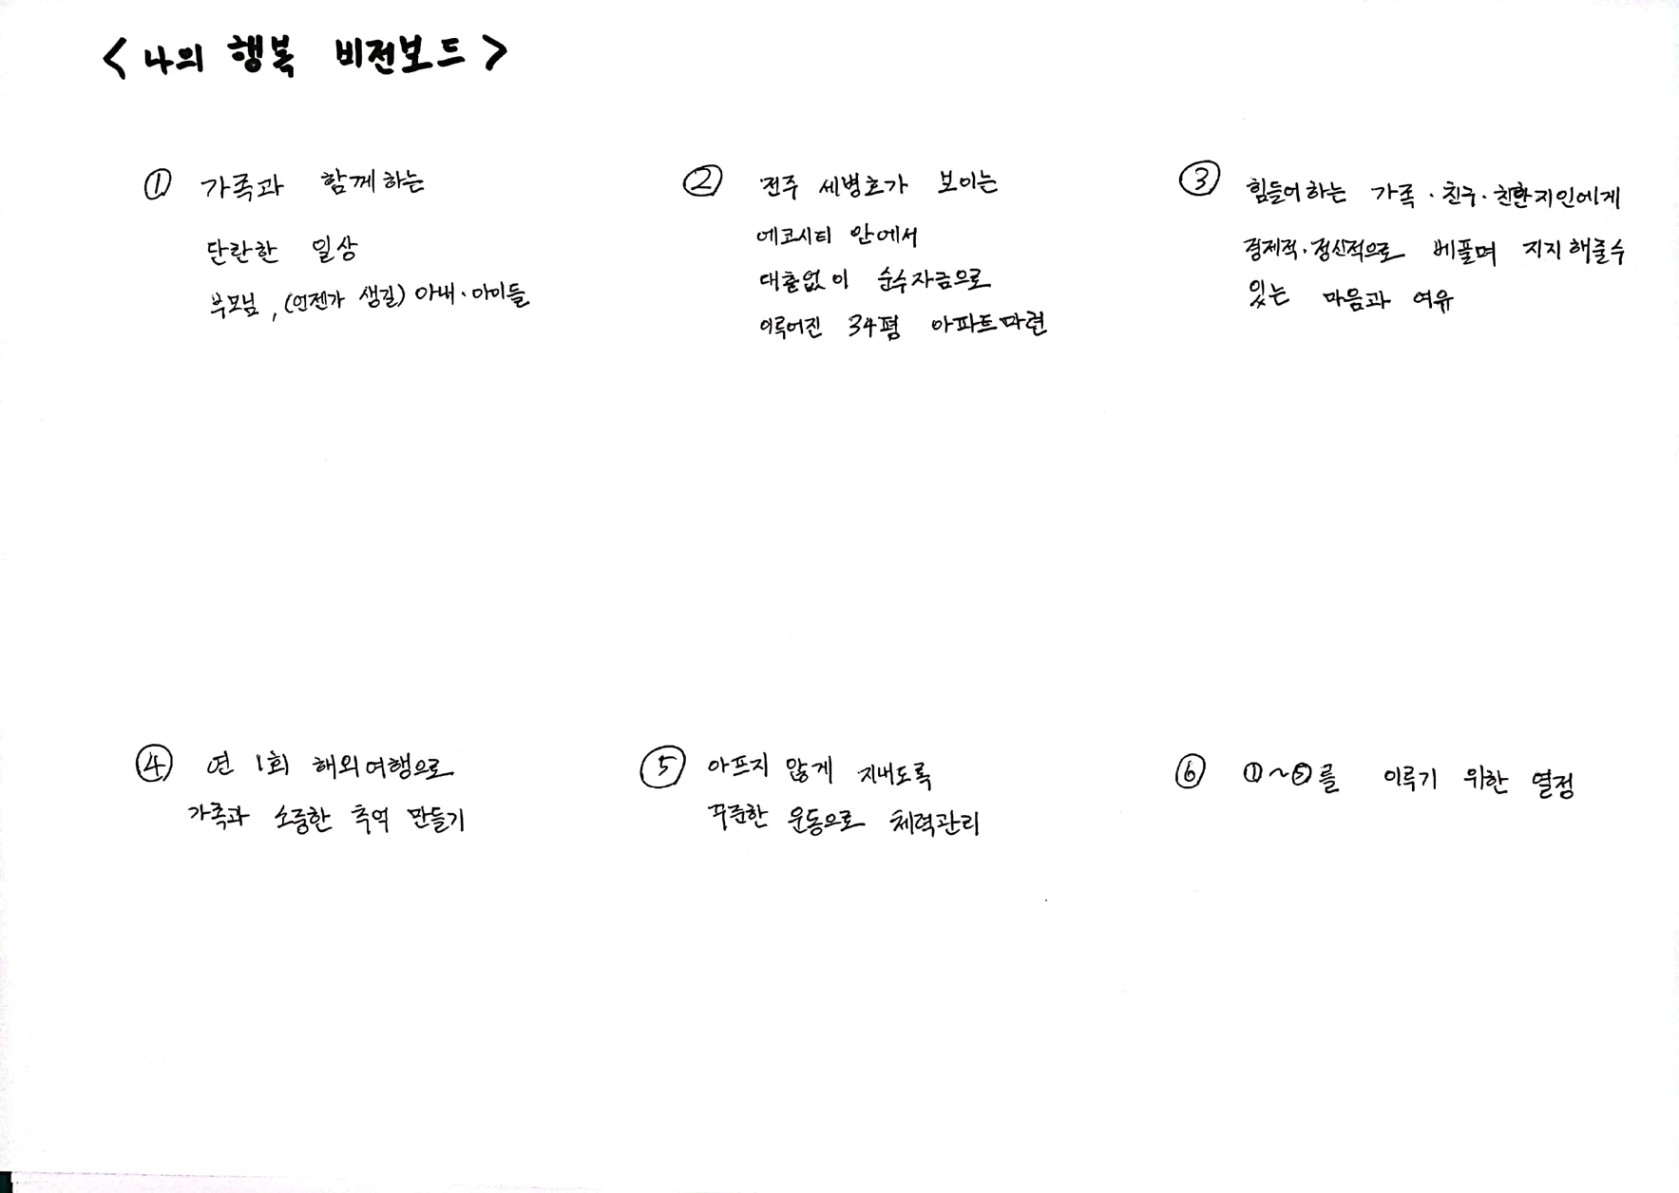 <나의 행복 비전보드>
① 가족과 함께하는
단란한 일상
부모님, (언젠가 생길) 아내·아이들
② 전주 세병호가 보이는
에코시티 안에서
대출없이 순수자금으로
이루어진 34평 아파트마련
③ 힘들어하는 가족·친구·친한지인에게
경제적·정신적으로 베풀며 지지해줄수
있는 마음과 여유
④ 연 1회 해외여행으로
가족과 소중한 추억 만들기
⑤ 아프지 않게 지내도록
꾸준한 운동으로 체력관리
⑥ ①~⑤를 이루기 위한 열정